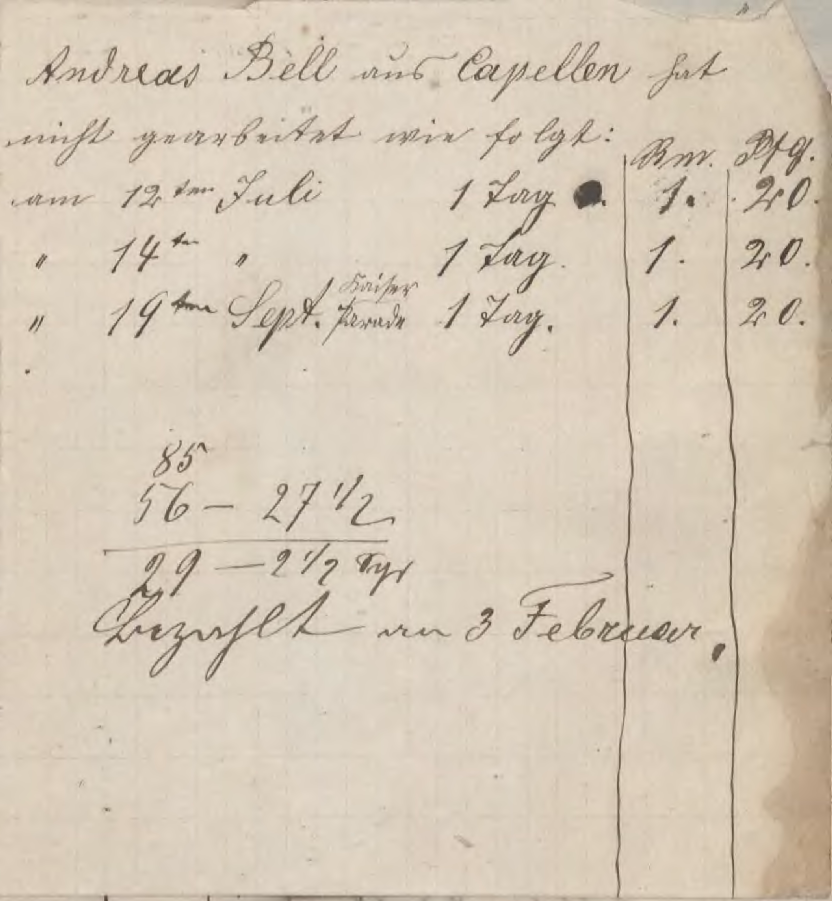 Andreas Bell aus Capellen hat
nicht gearbeitet wie folgt:
Rm. Pfg.
am 12ten Juli 1 Tag. 1. 20.
" 14ten " 1 Tag. 1. 20.
" 19ten Sept. Kaiser Parade 1 Tag. 1. 20.
85
56 — 27 1/2
29 — 2 1/2 Sgr
Bezahlt am 3 Februar.